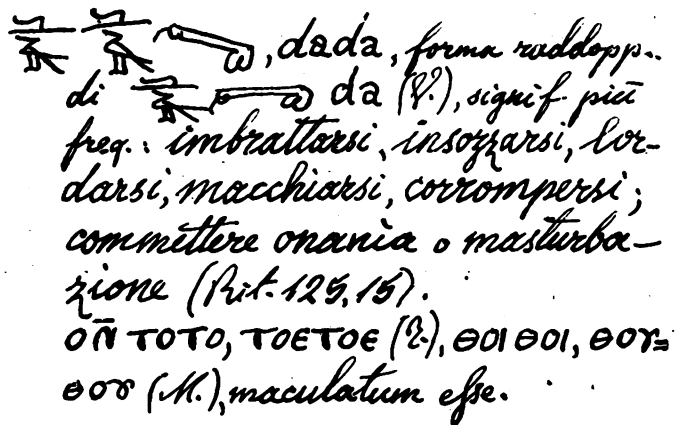 , dada, forma raddopp.
di da (V.), signif. più
freq.: imbrattarsi, insozzarsi, lor-
darsi, macchiarsi, corrompersi;
commettere onania o masturba-
zione (Rit. 125,15).
ⲟⲛ̄ ⲧⲟⲧⲟ, ⲧⲟⲉⲧⲟⲉ, ⲑⲟⲓⲑⲟⲓ, ⲑⲟⲩ=
ⲑⲟⲩ (M.), maculatum esse.